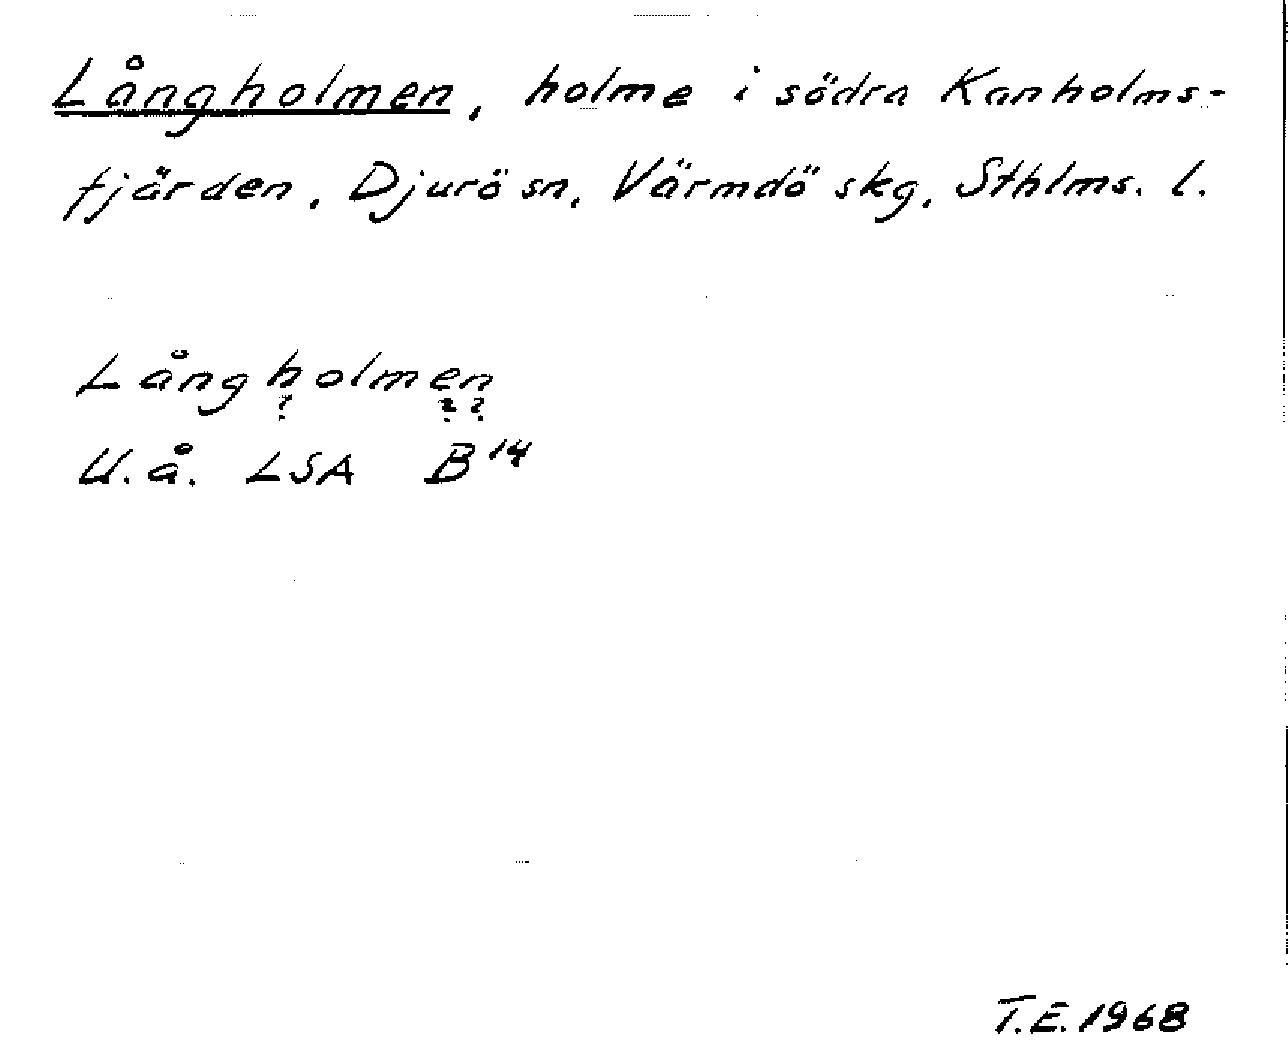 Långholmen, holme i södra Kanholms-
fjärden, Djurö sn, Värmdö skg, Sthlms. l.
Långholmen
? ? ?
U.å. LSA B¹⁴
T.E. 1968